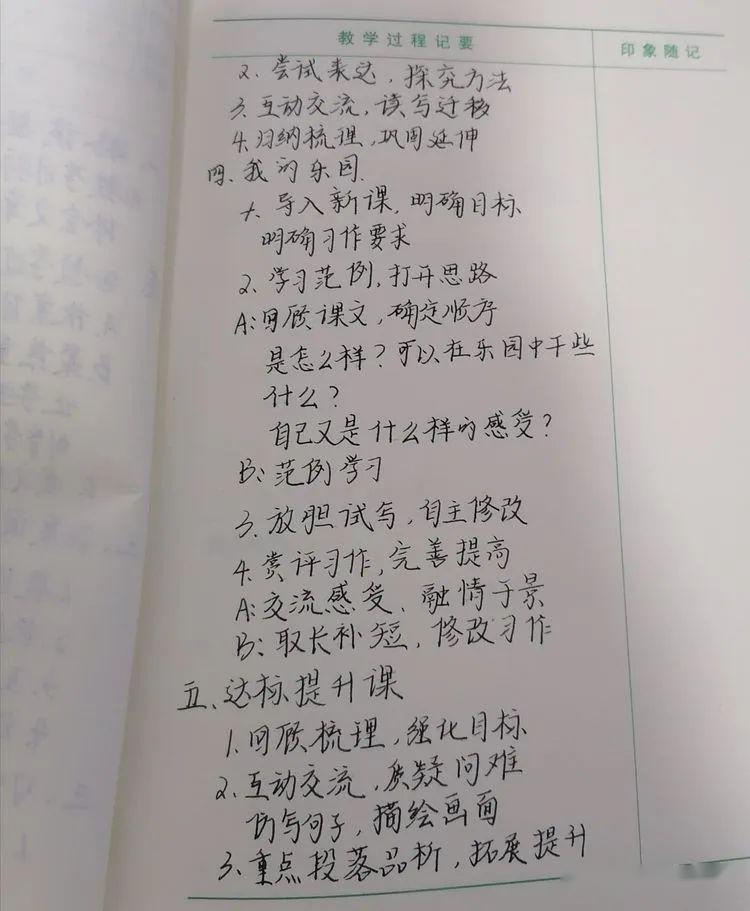 教学过程记要
印象随记
2. 尝试表达，探究方法
3. 互动交流，读写迁移
4. 归纳梳理，巩固延伸
四、我的乐园
1. 导入新课，明确目标
明确习作要求
2. 学习范例，打开思路
A：回顾课文，确定顺序
是怎么样？可以在乐园中干些
什么？
自己又是什么样的感受？
B：范例学习
3. 放胆试写，自主修改
4. 赏评习作，完善提高
A：交流感受、融情于景
B：取长补短，修改习作
五、达标提升课
1. 回顾梳理，强化目标
2. 互动交流，质疑问难
仿写句子，描绘画面
3. 重点段落品析，拓展提升